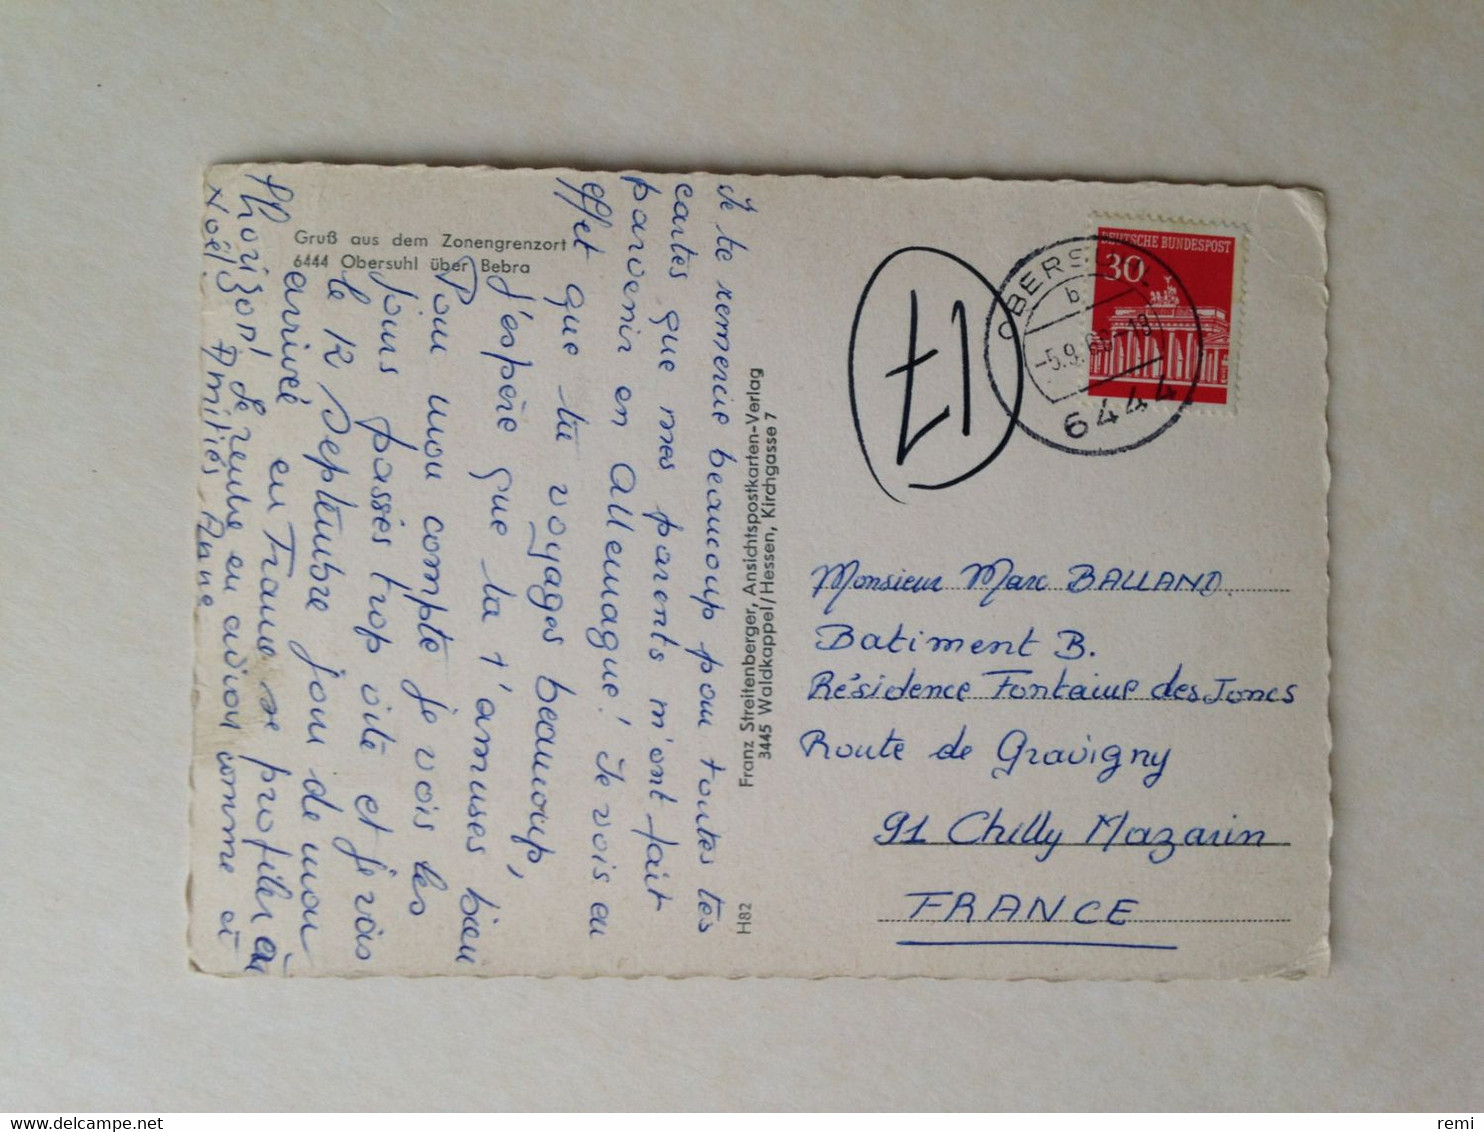 Gruß aus dem Zonengrenzort
6444 Obersuhl über Bebra
Je te remercie beaucoup pour toutes tes
cartes que mes parents m'ont fait
parvenir en Allemagne! Je vois en
effet que tu voyages beaucoup,
j'espère que tu t'amuses bien
Pour mon compte je vois les
jours passés trop vite et je vois
le 12 Septembre jour de mon
arrivée en France se profiler à
l'horizon! Je rentre en avion comme à
Noël. Amitiés Anne
Franz Streitenberger, Ansichtspostkarten-Verlag
3445 Waldkappel/Hessen, Kirchgasse 7
H82
DEUTSCHE BUNDESPOST
30
OBERSUHL
b
-5.9.68-18
6444
17
Monsieur Marc BALLAND
Batiment B.
Résidence Fontaine des Joncs
Route de Gravigny
91 Chilly Mazarin
FRANCE
delcampe.net
remi